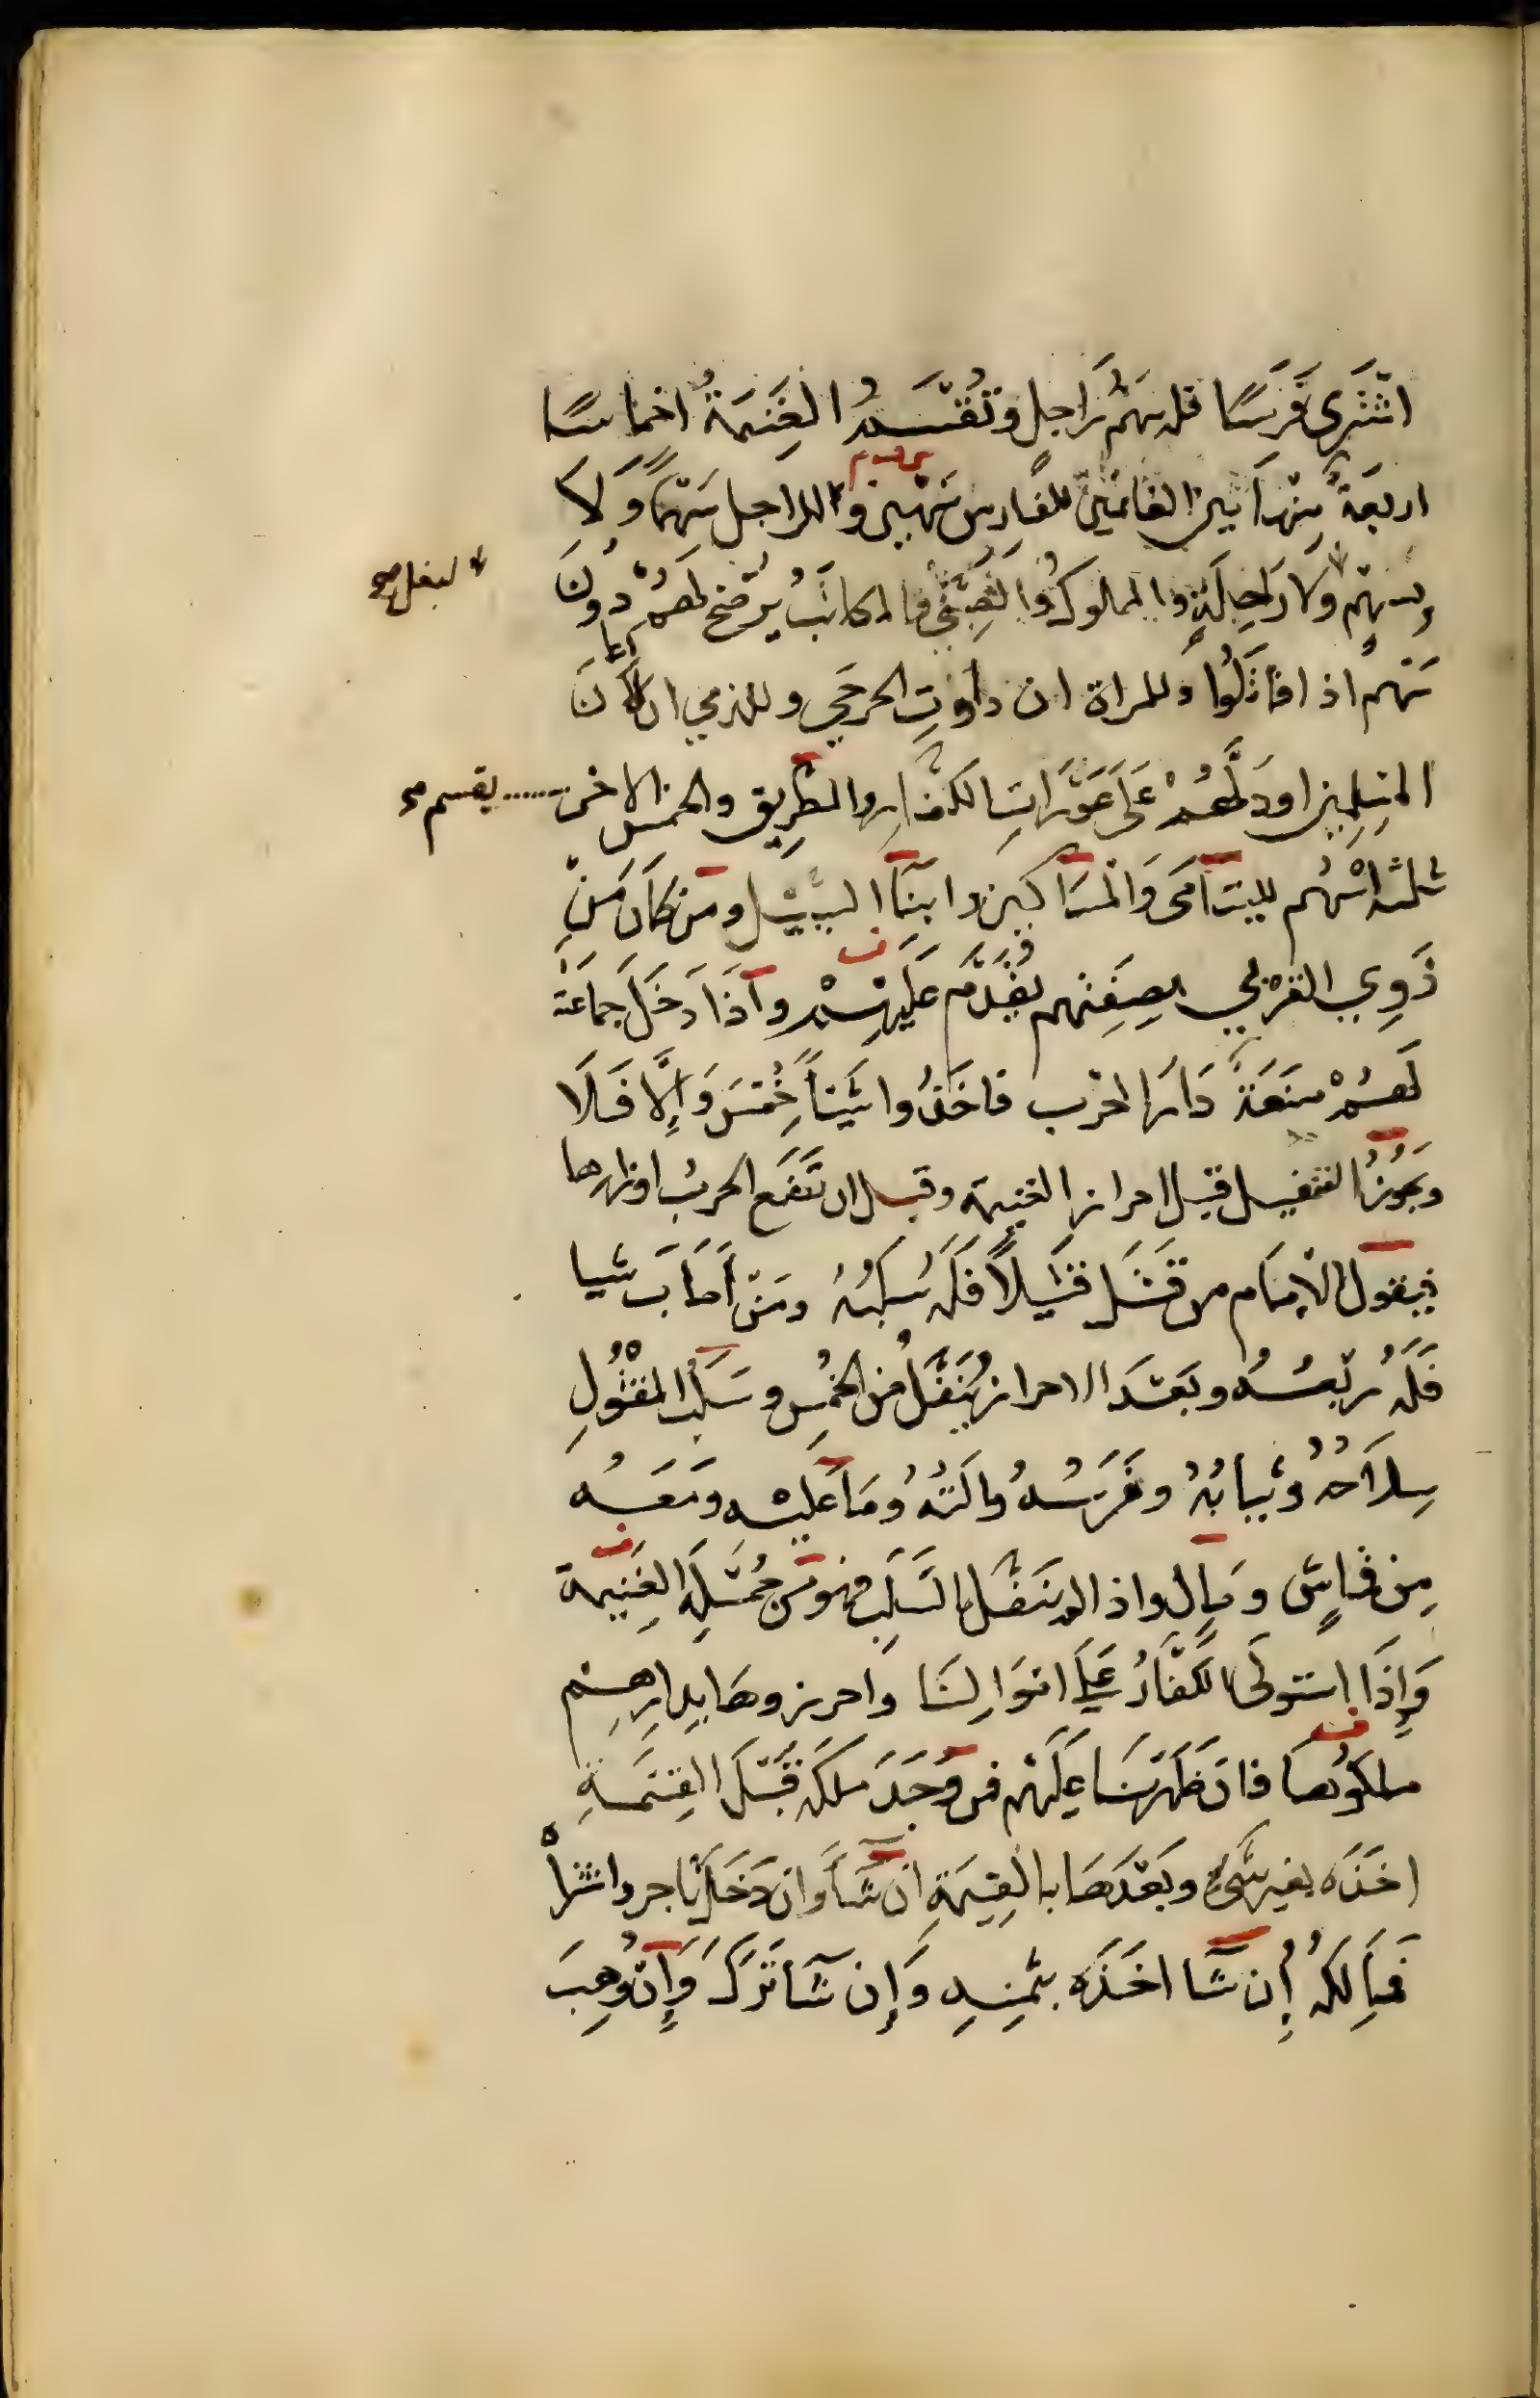 اشْتَرَى فَرَسًا فله سهم رَاجِلٍ وتُقْسَمُ الغَنِيمَةُ اخماسًا
اربعَةٌ مِنْهَا بين الغانمين للفارس سَهْمين وللراجل سَهْمًا وَلَا
يسهم ولا رَاحِلَةٍ والمملوكُ والصَّبِيُّ والمكاتَبُ يُرْضخ لَهُمْ دُونَ
لبغل صح
سَهْمٍ اذا قاتَلُوا وللمراة ان داوَتِ الجرحَى وللذمي ان اَعَانَ
المسلمين او دَلَّهُمْ عَلَى عَوْرَاتِ الكُفَّارِ والطَّرِيق والخمس الاخر
يقسم صح
ثلثة اسْهُم لليتَامَى وَالْمسَاكين وابنَاءِ السَّبِيْلِ ومَن كَانَ مِنْ
ذَوِي القُرْبَى بصِفَتِهم يُقَدَّم عَلَيْهِمْ وَاذَا دَخَلَ جماعَة
لَهُمْ مَنَعَةٌ دَارَ الحَرْب فاخَذُوا شَيْئاً خُمِّسَ وَإِلَّا فَلَا
ويجُوزُ التنفيل قبل احراز الغنيمة وقبل ان تَضَع الحربُ اوزارها
فيقول الْإمَام من قَتَلَ قَتِيلاً فَلَهُ سَلَبُهُ ومَنْ أصَابَ شيا
فَلَهُ رُبْعُهُ وبَعْدَ الاحراز يُنَفَّلُ مِن الخُمسِ وسَلَبُ المَقْتُولِ
سِلَاحُهُ وثِيَابُهُ وفَرَسُهُ والَتُهُ ومَا عَلَيْهِ ومَعَهُ
مِن قماشٍ ومَالٍ واذا لم يُنَفَّل بالسَّلَبِ فهو مِن جُمْلَةِ الغَنِيمة
وَإِذَا استولَى الكُفَّارُ عَلَى امْوَالِنَا وَاحرزوهَا بِدارِهِمْ
ملكُوهَا فان ظَهَرْنَا عَلَيْهم فمن وَجَدَ ملكَهُ قَبْلَ القِسْمَةِ
اخَذَه بغير شَيْءٍ وبَعْدَهَا بالقِيْمَةِ ان شَآ وَان دَخَلَ تاجر واشتراه
فَمَالِكُهُ إن شَا اخَذَه بثَمَنِهِ وَإِن شَآ تَرَكَ وَإِن وُهِبَ